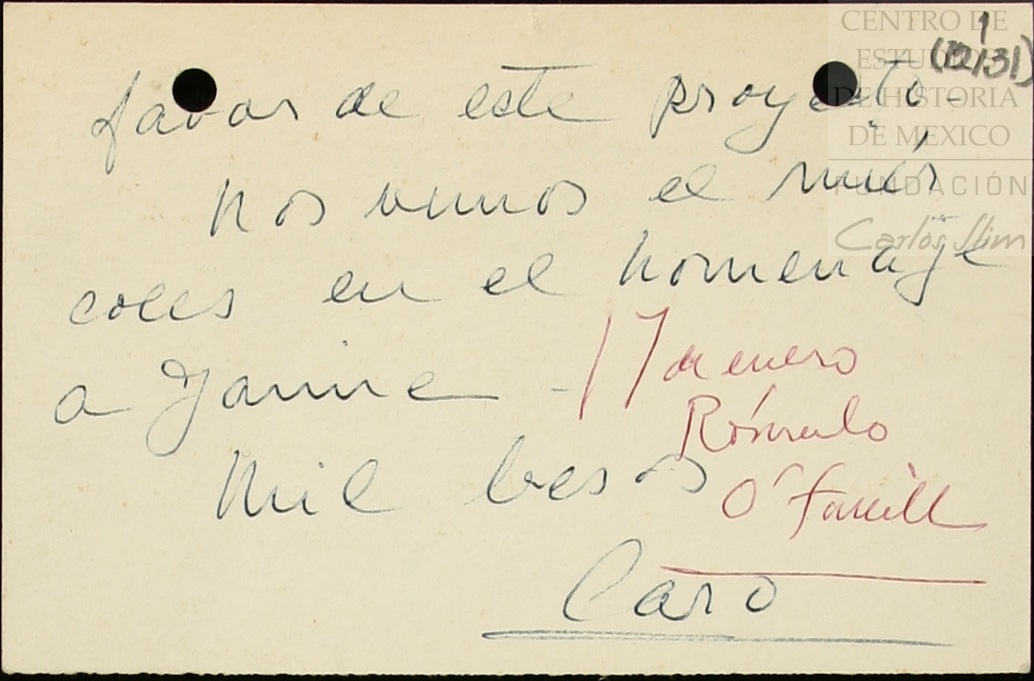 favor de este proyecto-
nos vemos el miér
coles en el homenaje
a Jaime -
Mil besos
Caro
17 de enero
Rómulo
O'Farrill
1
(12/31)
CENTRO DE
ESTUDIOS
DE HISTORIA
DE MEXICO
FUNDACIÓN
Carlos Slim